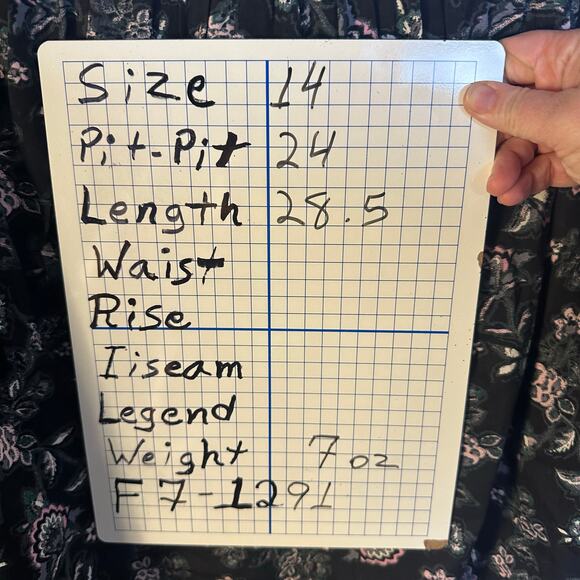 Size 14
Pit-Pit 24
Length 28.5
Waist
Rise
Iiseam
Legend
Weight 7 oz
F7-1291